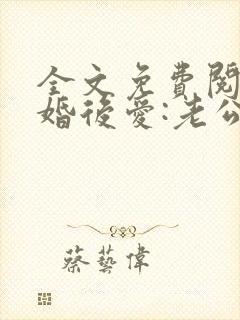 全文免費閱
婚後愛:老公
蔡藝偉